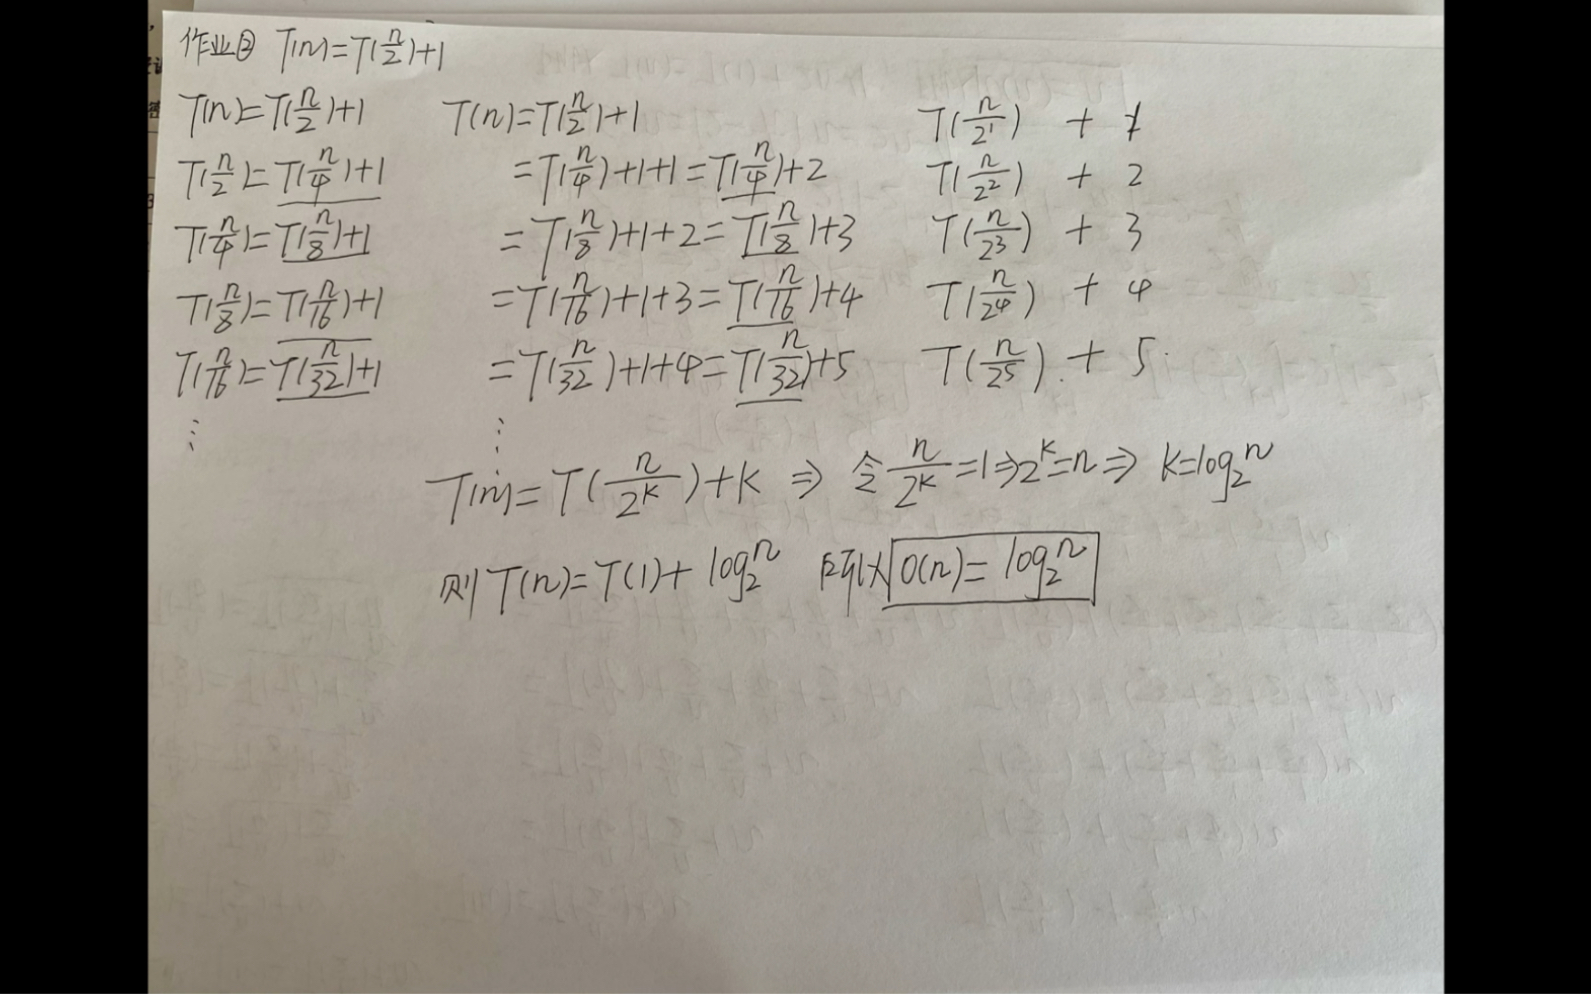 作业② T(n)=T(n/2)+1
T(n)=T(n/2)+1 T(n)=T(n/2)+1 T(n/2^1) + 1
T(n/2)=T(n/4)+1 =T(n/4)+1+1=T(n/4)+2 T(n/2^2) + 2
T(n/4)=T(n/8)+1 =T(n/8)+1+2=T(n/8)+3 T(n/2^3) + 3
T(n/8)=T(n/16)+1 =T(n/16)+1+3=T(n/16)+4 T(n/2^4) + 4
T(n/16)=T(n/32)+1 =T(n/32)+1+4=T(n/32)+5 T(n/2^5) + 5
⋮ ⋮
T(n)=T(n/2^k)+k ⇒ 令 n/2^k=1⇒2^k=n⇒ k=log₂n
则T(n)=T(1)+log₂n 所以 O(n)=log₂n